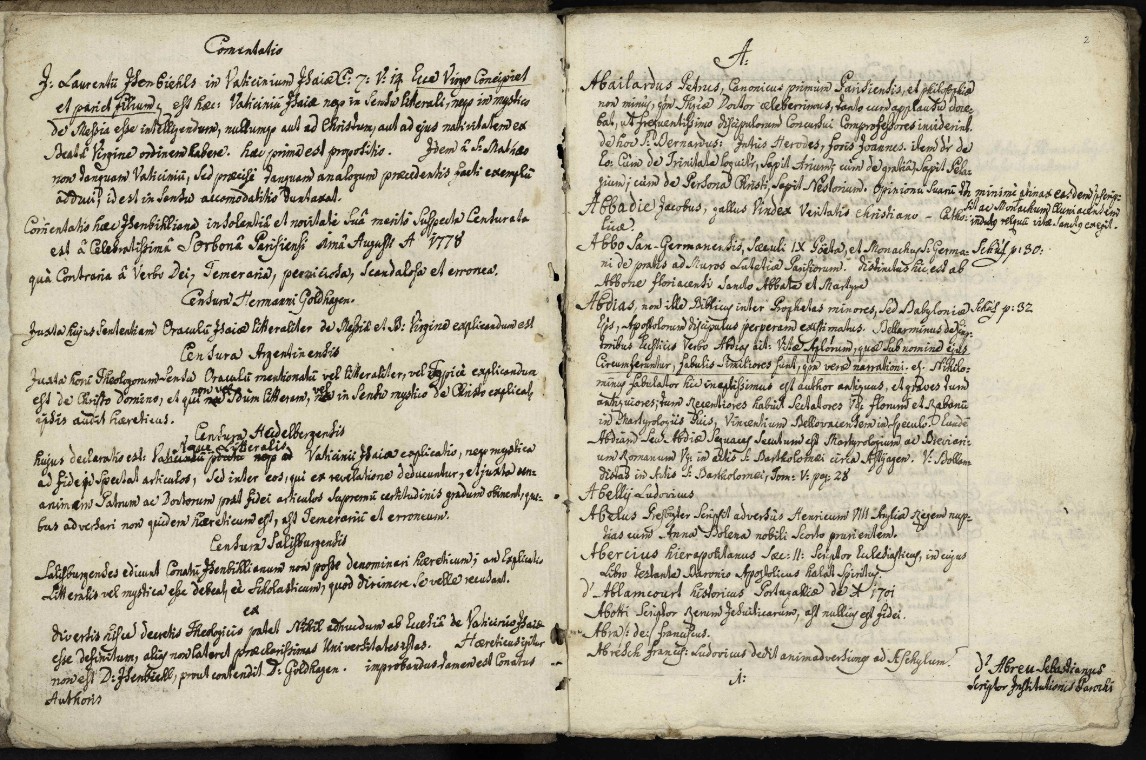 Comentatio
J: Laurentii Isenbiehls in Vaticinium Isaiæ C: 7: V: 14 Ecce Virgo Concipiet
et pariet filium, est hæc: Vaticiniũ Isaiæ neq in Sensu litterali, neq in mystico
de Messia esse intelligendum, nullumqe aut ad Christum, aut ad ejus nativitatem ex
Beatâ Virgine ordinem habere. hæc prima est propositio. Idem â S: Mathæo
non tanquam Vaticiniũ, Sed præcisè tanquam analogum præcedentis facti exemplũ
adduci, id est in Sensu accomodatitio duntaxat.
Comẽntatio hæc Isenbihliana insolentiâ et novitate Suâ meritò Suspecta Censurata
est â Celebratissimâ Sorbonâ Parisiensi 1mâ Augusti Aº 1778
quâ Contraria â Verbo Dei, Temeraria, perniciosa, Scandalosa et erronea.
Censura Hermanni Goldhagen.
Juxta hujus Sententiam Oraculũ Isaiæ litteraliter de Messiâ et B: Virgine explicandum est
Censura Argentinensis
Juxta horũ Theologorum Oraculũ mentionatũ vel litteraliter, vel Typicè explicandum
est de Christo Domino, et qui non vel 2dum litteram, vel in Sensu mystico de Christo explicat,
ipsis audit hæreticus.
Censura Heidelbergensis
hujus declaratio est: Vaticinii Isaiæ explicatio, neq mystica
neque Litteralis
ad fidei Spectat articulos, Sed inter eos, qui ex revelatione deducuntur, et juxta una-
animem Patrum ac Doctorum post fidei articulos Supremũ certitudinis gradum obtinent, qui-
bus adversari non quidem hæreticum est, ast Temerariũ et erroneum.
Censura Salisburgensis
Salisburgenses edicunt Conatũ Isenbihlianum non posse denominari hæreticum; an Explicatio
Litteralis vel mystica esse debeat, ex Scholasticum, quod dirimere Se velle recusant.
ex
diversis hisce decretis Theologicis patet Nihil adhucdum ab Ecclesiâ de Vaticinio Isaiæ
esse definitum, aliàs non lateret præclarissimas Universitates istas. Hæreticus igitur
non est D: Isenbiehl, prout contendit D: Goldhagen. improbandus tamen est Conatus
Authoris
2
A:
Abailardus Petrus, Canonicus primum Parisiensis, et philosophiæ
non minus, qm Thiæ Doctor celeberrimus, tanto cum applausu doce-
bat, ut frequentissimo discipulorum Concursui Comprofessores inviderint.
de hoc S: Bernardus: Intus Herodes, foris Joannes. item dr de
eo: Cum de Trinitate loquitr, Sapit Arium; cum de gratiâ, Sapit Pela-
gium; cum de Personâ Christi, Sapit Nestorium. Opinionũ Suarũ
in minimũ
ac Monachum Cluniacensem
reliquũ vitæ Sanctè exegit.
Abbadie Jacobus, gallus Vindex Veritatis Christianæ - Catho-
licæ
Abbo San-Germanensis, Sæculi IX Poëta, et Monachus S: Germa-
ni de pratis ad Muros Lutetiæ Parisiorum. distinctus hic est ab
Abbone floriacensi Sancto Abbate et Martyre
Schaz p: 30:
Abdias, non ille Biblicus inter Prophetas minores, Sed Babyloniæ
Eps, Apostolorum discipulus perperam existimatus. Bellarminus de Scrip-
toribus Ecclesticis Verbo Abdias ait: Vitæ Aplorum, quæ Sub nomine ejus
Circumferuntur, fabulis Similiores Sunt, qm veræ narrationi. est Nihilo-
minus fabulator hic ineptissimus est author antiquus, et graves tum
antiquiores, tum Recentiores habuit Sectatores Vg: florum et Rabanũ
in Martyrologiis Suis, Vincentium Bellovacensem in Speculo.
Abdiam Seu Abdiæ Sequaces Secutum est Martyrologium ac Breviari-
um Romanum Vg: in actis S: Bartholomæi circa Astyagen. V: Bollan-
distas in Actis S: Bartholomei, Tom: V: pag: 28
Schaz p: 32
Abellij Ludovicus
Abelus Presbyter Scripsit adversùs Henricum VIII Angliæ Regem nup-
tias cum Anna Bolena nobili Scorto prurientem.
Abercius hierapolitanus Sæc: II: Scriptor Ecclesiasticus, in cujus
Libro testante Baronio Apostolicus halat Spiritus.
d' Ablamcourt historicus Portugalliæ de Aº 1701
Abotti Scriptor Rerum Jesuiticarum, ast nullius est fidei.
Abra: de: franciscus.
Abresch francis: Ludovicus dedit animadversiones ad Æschylum.
d' Abreu Sebastianus
Scriptor Institutionis Parochi
A: